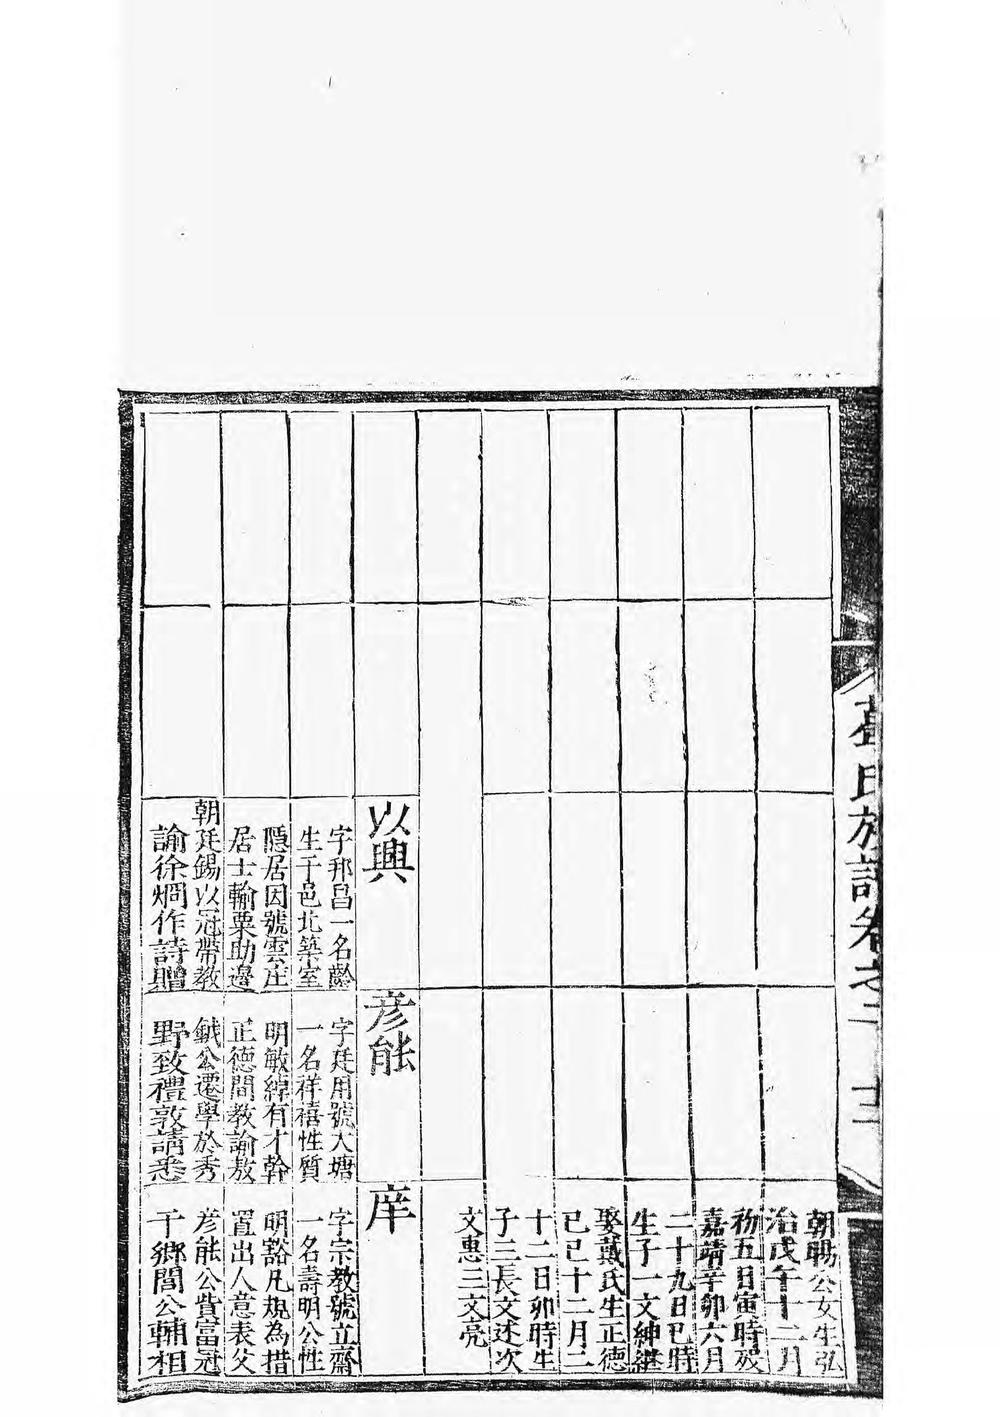 葛氏族譜卷之二
十三
朝暘公女生弘
治戊午十二月
初五日寅時殁
嘉靖辛卯六月
二十九日巳時
生子一文紳繼
娶戴氏生正德
己巳十二月二
十二日卯時生
子三長文述次
文惠三文亮
以興
字邦昌一名齡
生于邑北築室
隱居因號雲庄
居士輸粟助邊
朝廷錫以冠帶教
諭徐烱作詩贈
彦能
字廷用號大塘
一名祥禧性質
明敏綽有才幹
正德間教諭敖
鉞公遷學於秀
野致禮敦請悉
庠
字宗教號立齋
一名壽明公性
明豁凡規為措
置出人意表父
彦能公貲富冠
于鄉閭公輔相